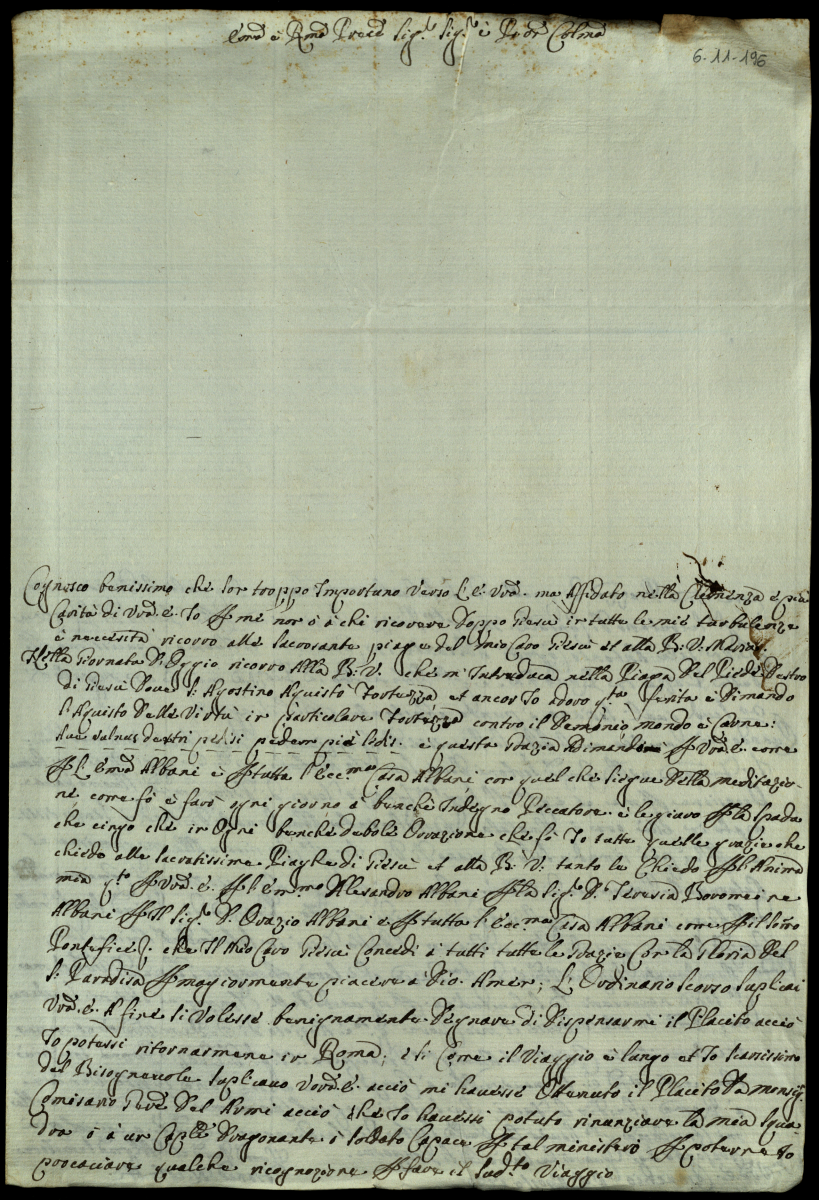 Em̃o e Rm̃o Preñe Sig.r Sig.r è Pr̃oñ Colm̃o
6-11-196
Cognosco benissimo che son troppo Importuno Verso L'E: Vr̃a. ma Affidato nella Clemenza è pia
Carità di Vr̃a. E. Io P mè non ò à chi ricorrere Doppo Giesù in tutte le mie turbulenze
è necessità ricorro alle sacrosante piaghe del mio Caro Giesù et alla B: V: Maria.
Nella Giornata D'Oggio ricorro Alla B: V. che m'Introduca nella Piaga Del Piede Destro
di Giesù Dove S: Agostino Aquistò Fortezza et ancor Io adoro q.ta ferita e Dimando
l'Aquisto Delle Virtù in particolare Fortezza contro il Demonio mondo è Carne:
Ave vulnus dextri pedis è questa Grazia P Vr̃a. E. come
P L'Em̃o Albani e P tutta l'Ecc.ma Casa Albani con quel che siegue Della meditazio-
ne come fò è farò ogni giorno è benche Indegno Peccatore. è le giuro P la Spada
che cingo che in Ogni benche debole Orazione che fò Io tutte quelle grazie che
chiedo alle Sacratissime Piaghe di Giesù et alla B: V: tanto le Chiedo P l'Anima
mia q.to P Vr̃a. E. P l'Em̃mo Alesandro Albani P la Sig.ra D. Teresia Boromei ne
Albani P Il Sig.r D. Orazio Albani e P tutta l'Ecc.ma Casa Albani come P il Som̃o
Pontefice che Il Mio Caro Giesù Concedi à tutti tutte le Grazie Con la Gloria Del
S: Paradiso P magiormente piacere a Dio. Amen; L'Ordinario Scorso Suplicai
Vr̃a. E. Afine si Volesse benignamente Degnare di Dispensarmi il Placito acciò
Io potessi ritornarmene in Roma; è si Come il Viaggio è lungo et Io Scarsissimo
del Bisognevole Suplicavo Vr̃a. E. acciò mi havesse Ottenuto il Placito Da Monsig.r
Comisario Gen̄le Del Armi acciò che Io havessi potuto rinunziare la mia Squa
dra ò à un Cap̃le Dragonante ò soldato Capace P tal ministero P poterne Io
procacciare qualche ricognizione P fare il Sud.to Viaggio